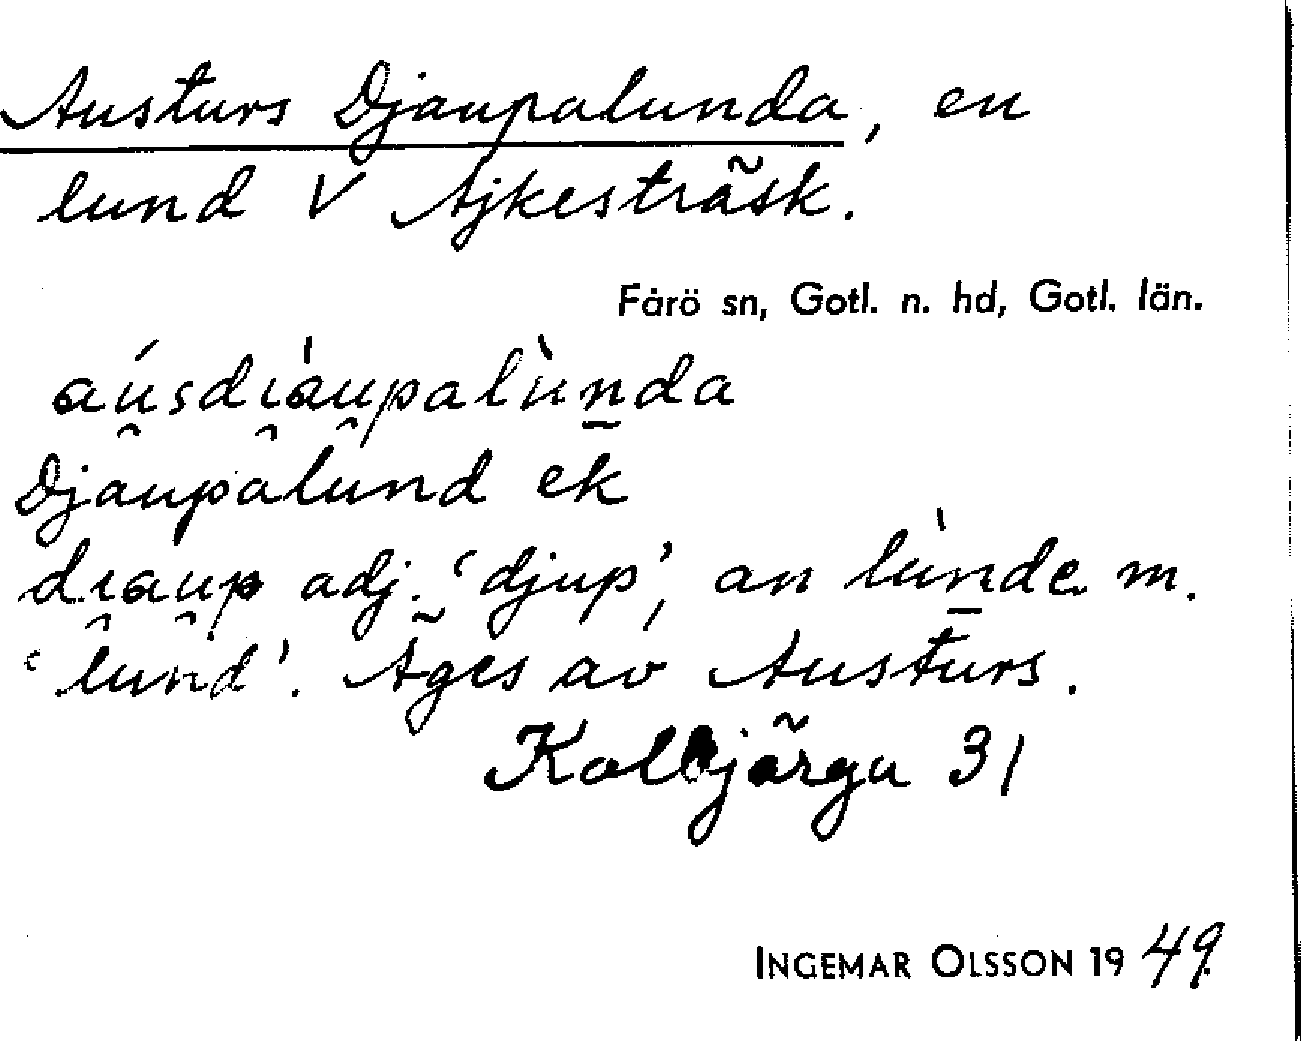 Austurs Djaupalunda, en
lund V Ajkesträsk.
Fårö sn, Gotl. n. hd, Gotl. län.
aú̯sdi̯àu̯palùn̲da
Djaupalund ek
di̯au̯p adj. 'djup', an lùn̲de m.
'lund'. Äges av Austurs.
Kolbjärgu 31
INGEMAR OLSSON 1949.